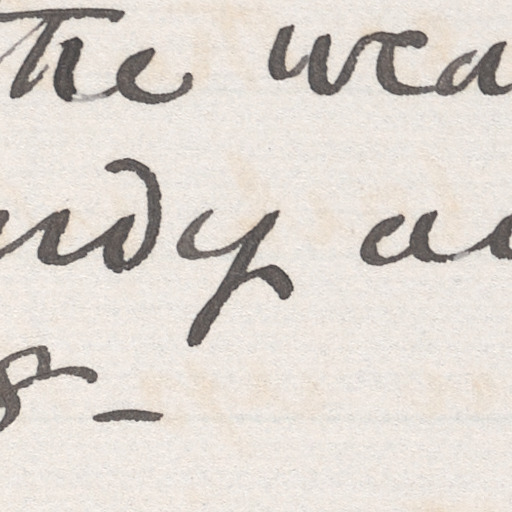 the wea
ndy a
8 –